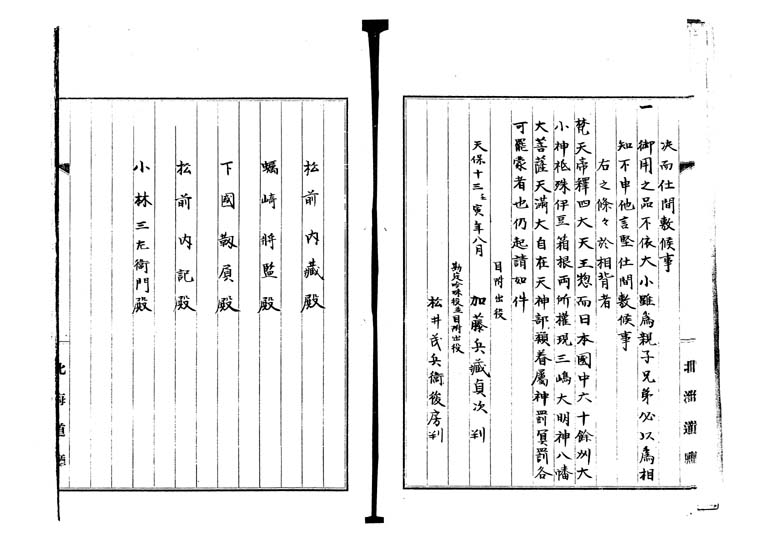 決而仕間敷候事
一 御用之品不依大小雖為親子兄弟必以為相
知不申他言堅仕間敷候事
右之條々於相背者
梵天帝釋四大天王惣而日本國中六十餘州大
小神祇殊伊豆箱根両所權現三嶋大明神八幡
大菩薩天滿大自在天神部類眷屬神罰冥罰各
可罷蒙者也仍起請如件
天保十三壬寅年八月
目附出役
加藤兵藏貞次 判
勘定吟味役並目附出役
松井茂兵衛後房 判
松前内藏殿
蠣崎將監殿
下國殿
松前内記殿
小林三左衛門殿
北海道廳
北海道廳